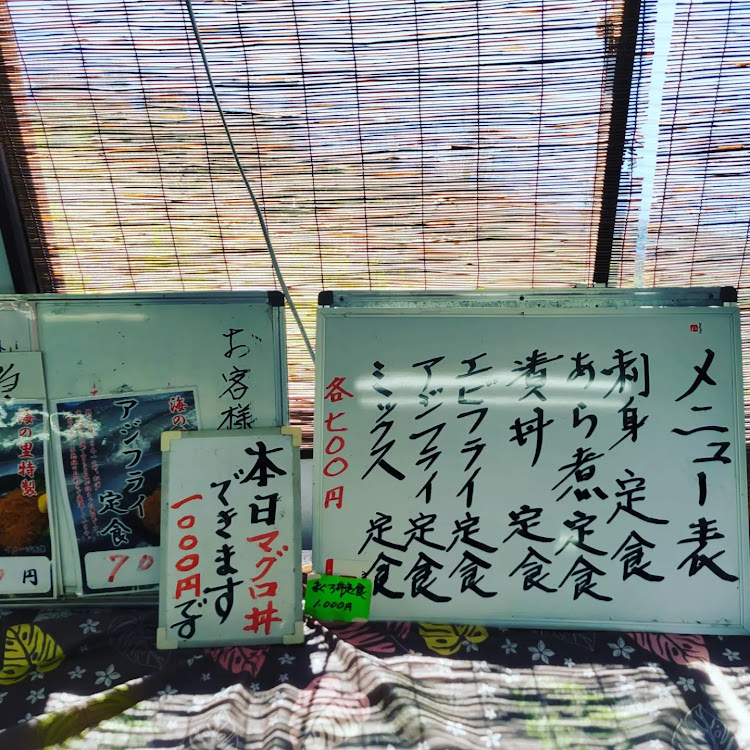 メニュー表
刺身 定食
あら煮定食
漬丼 定食
エビフライ定食
アジフライ定食
ミックス 定食
各七〇〇円
まぐろ丼定食
1,000円
本日マグロ丼
できます
一〇〇〇円です
お客様
海の
アジフライ
定食
70
海の里特製
円